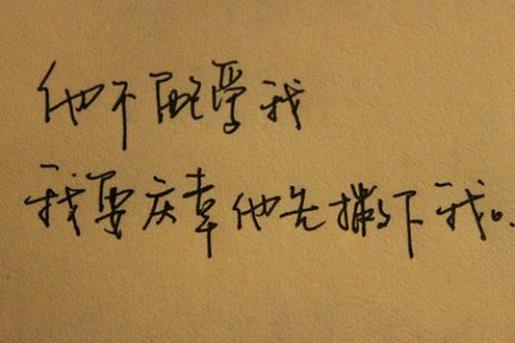 他不配爱我
我要庆幸他先撇下我。